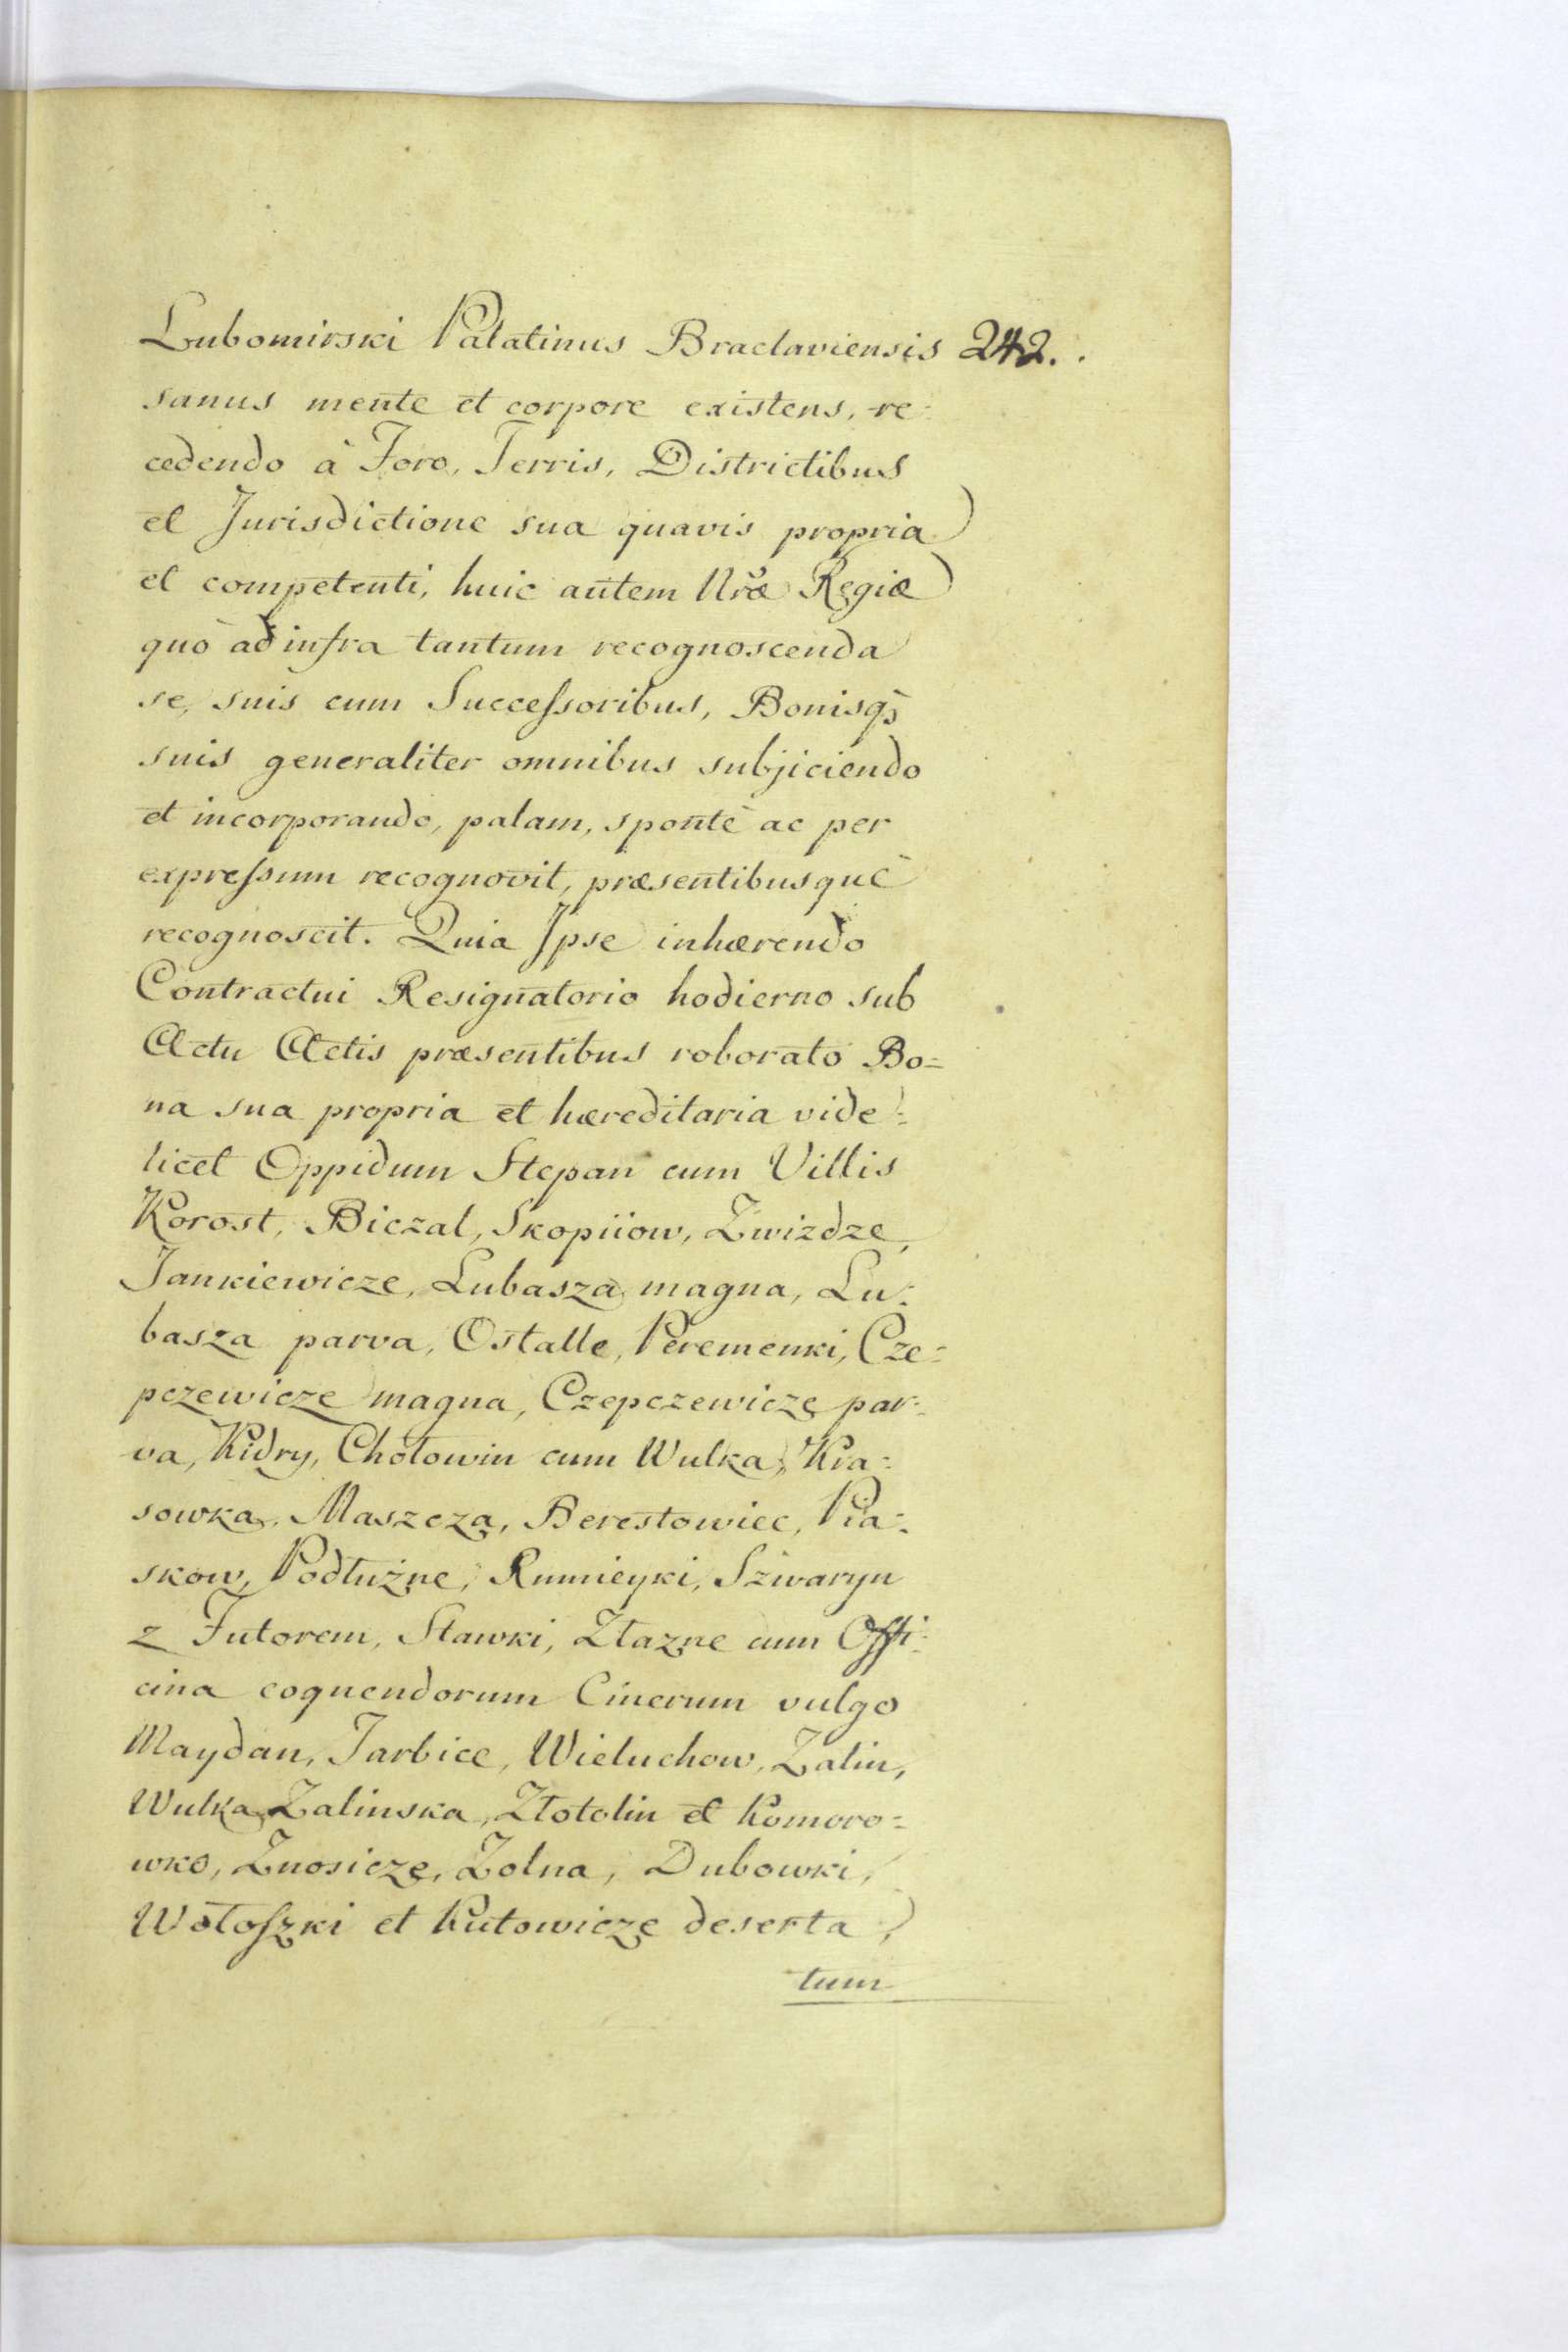 Lubomirski Palatinus Braclaviensis 242.
sanus mente et corpore existens, re=
cedendo à Foro, Terris, Districtibus
et Jurisdictione sua quavis propria
et competenti, huic autem Nræ Regiæ
quò ad infra tantum recognoscenda
se, suis cum Successoribus, Bonisq;
suis generaliter omnibus subjiciendo
et incorporando, palam, spontè ac per
expressum recognovit, præsentibusquè
recognoscit. Quia Ipse inhærendo
Contractui Resignatorio hodierno sub
Actu Actis præsentibus roborato Bo=
na sua propria et hæreditaria vide=
licet Oppidum Stepan cum Villis
Korost, Biczal, Skopiiow, Zwizdze,
Jankiewicze, Lubasza magna, Lu=
basza parva, Ostalle, Peremenki, Cze=
pczewicze magna, Czepczewicze par=
va, Kidry, Chołowin cum Wulka, Kra=
sowka, Maszcza, Berestowiec, Pia=
skow, Podłużne, Rumieyki, Szwaryn
z Futorem, Stawki, Złazne cum Offi=
cina coquendorum Cinerum vulgo
Maydan, Jarbice, Wieluchow, Zalin,
Wulka Zalinska, Złotolin et Komoro=
wko, Znosicze, Zolna, Dubowki,
Wołoszki et Kutowicze deserta,
tum